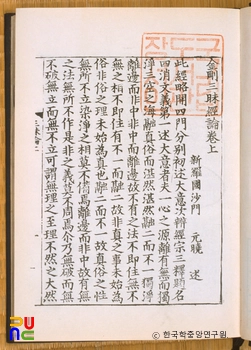 金剛三昧經論卷上
新羅國沙門 元曉 述
此經略開四門分別初述大意次辨經宗三釋題名
四消文義第一述大意者夫一心之源離有無而獨
淨三空之海融眞俗而湛然湛然融二而不一獨淨
離邊而非中非中而離邊故不有之法不卽住無不
無之相不卽住有不一而融二故非眞之事未始爲
俗非俗之理未始爲眞也融二而不一故眞俗之性
無所不立染淨之相莫不備焉離邊而非中故有無
之法無所不作是非之義莫不周焉尒乃無破而無
不破無立而無不立可謂無理之至理不然之大然
ⓒ 한국학중앙연구원